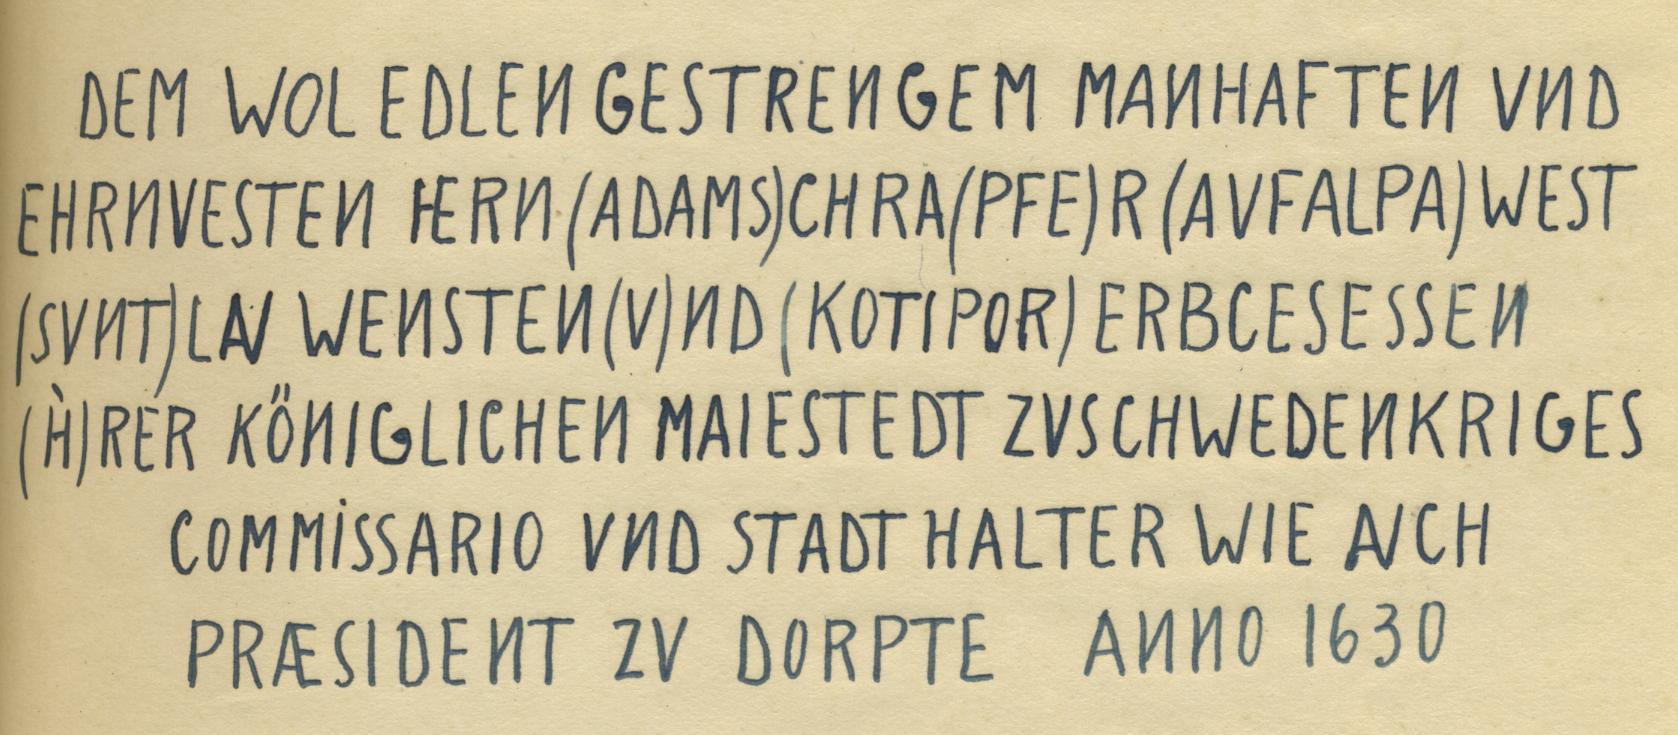 DEM WOL EDLEN GESTRENGEM MANHAFTEN VND
EHRNVESTEN HERN (ADAMS)CHRA(PFE)R (AVFALPA)WEST
(SVNT)LAV WENSTEN(V)ND (KOTIPOR) ERBCESESSEN
(Ḣ)RER KÖNIGLICHEN MAIESTEDT ZVSCHWEDENKRIGES
COMMISSARIO VND STADT HALTER WIE AVCH
PRÆSIDENT ZV DORPTE ANNO 1630